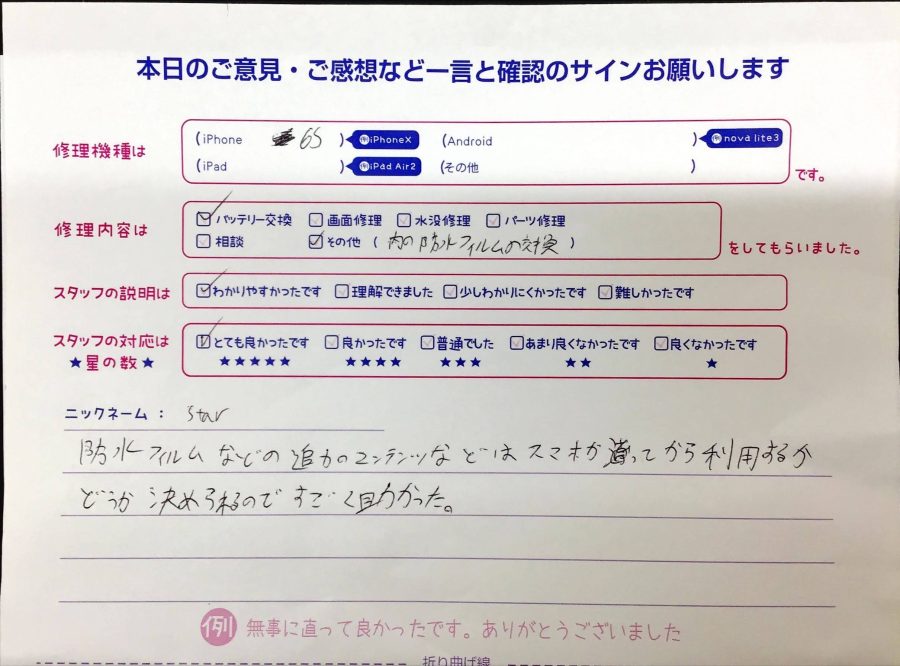 本日のご意見・ご感想など一言と確認のサインお願いします
修理機種は
(iPhone 6S ) 例iPhoneX (Android ) 例nova lite3
(iPad ) 例iPad Air2 (その他 )
です。
修理内容は
バッテリー交換 画面修理 水没修理 パーツ修理
相談 その他 ( 内の防水フィルムの交換 )
をしてもらいました。
スタッフの説明は
わかりやすかったです 理解できました 少しわかりにくかったです 難しかったです
スタッフの対応は
★星の数★
とても良かったです 良かったです 普通でした あまり良くなかったです 良くなかったです
★★★★★ ★★★★ ★★★ ★★ ★
ニックネーム: star
防水フィルムなどの追加のコンテンツなどはスマホが直ってから利用するか
どうか決められるのですごく助かった。
例 無事に直って良かったです。ありがとうございました
折り曲げ線